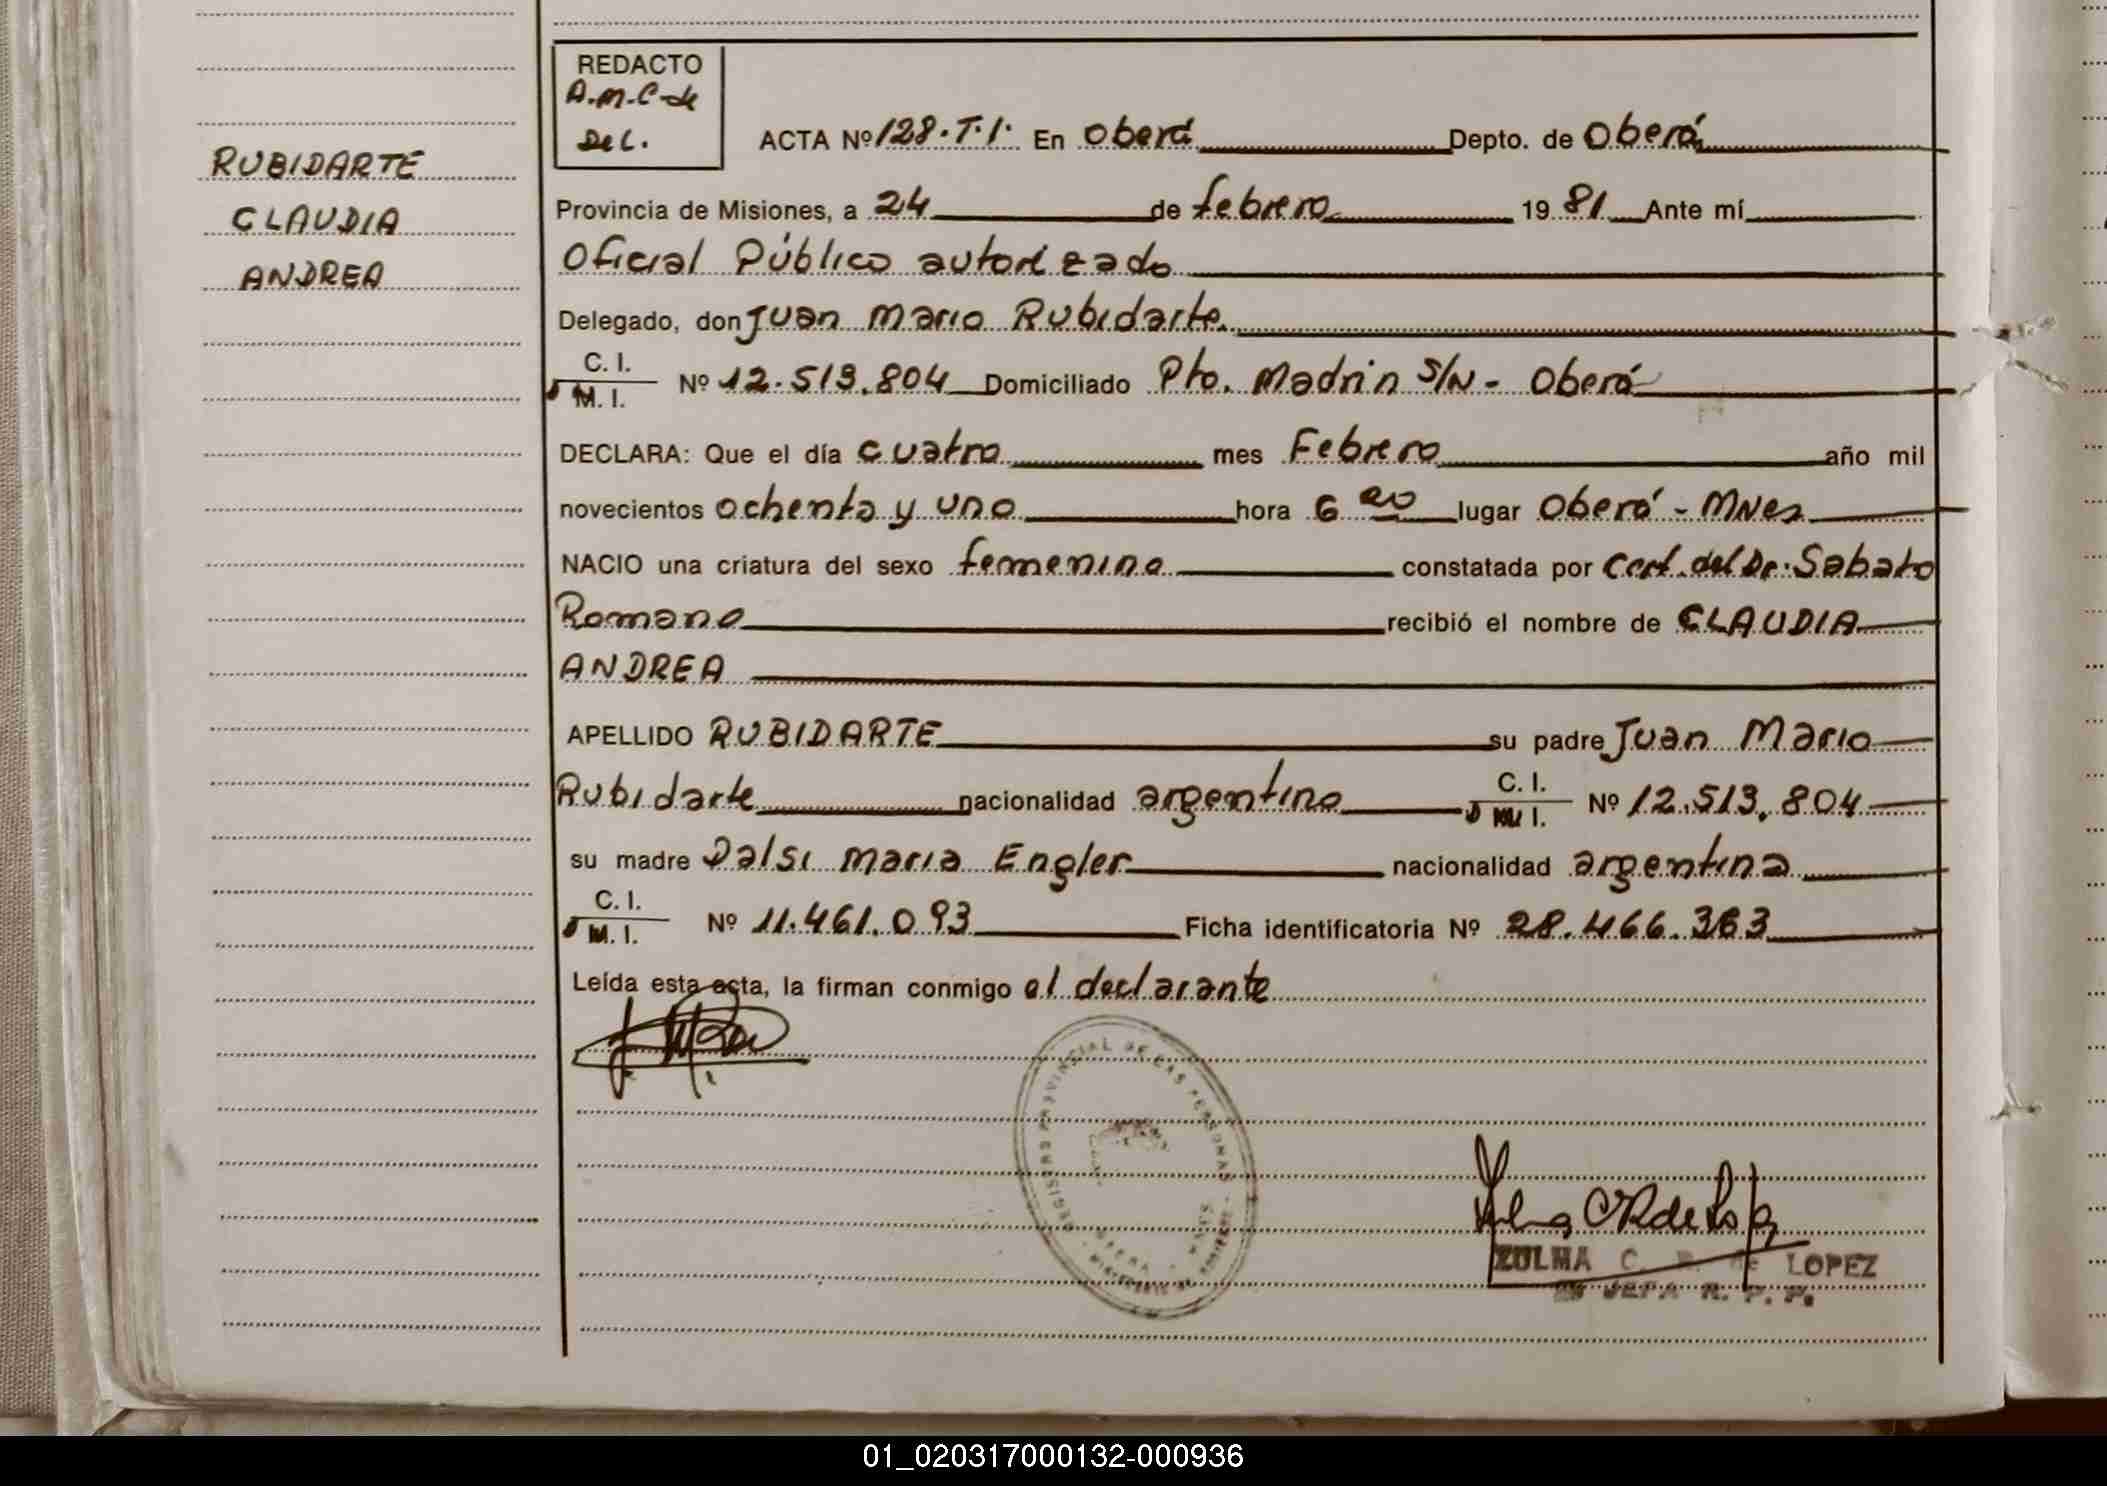 RUBIDARTE
CLAUDIA
ANDREA
REDACTO
A.M.C. de
De L.
ACTA Nº 128.T.1. En Oberá Depto. de Oberá
Provincia de Misiones, a 24 de febrero 1981 Ante mí
Oficial Público autorizado
Delegado, don Juan Mario Rubidarte.
C. I.
M. I. Nº 12.513.804 Domiciliado Pto. Madrin S/N - Oberá
DECLARA: Que el día cuatro mes Febrero año mil
novecientos ochenta y uno hora 6 20 lugar Oberá - MNes
NACIO una criatura del sexo femenino constatada por Cert. del Dr. Sabato
Romano recibió el nombre de CLAUDIA
ANDREA
APELLIDO RUBIDARTE su padre Juan Mario
Rubidarte nacionalidad argentino C. I. M. I. Nº 12.513.804
su madre Dalsi Maria Engler nacionalidad argentina
C. I.
M. I. Nº 11.461.093 Ficha identificatoria Nº 28.466.363
Leída esta acta, la firman conmigo el declarante
REGISTRO PROVINCIAL DE LAS PERSONAS
ZULMA C. R. de LOPEZ
JEFA R. P. P.
01_020317000132-000936